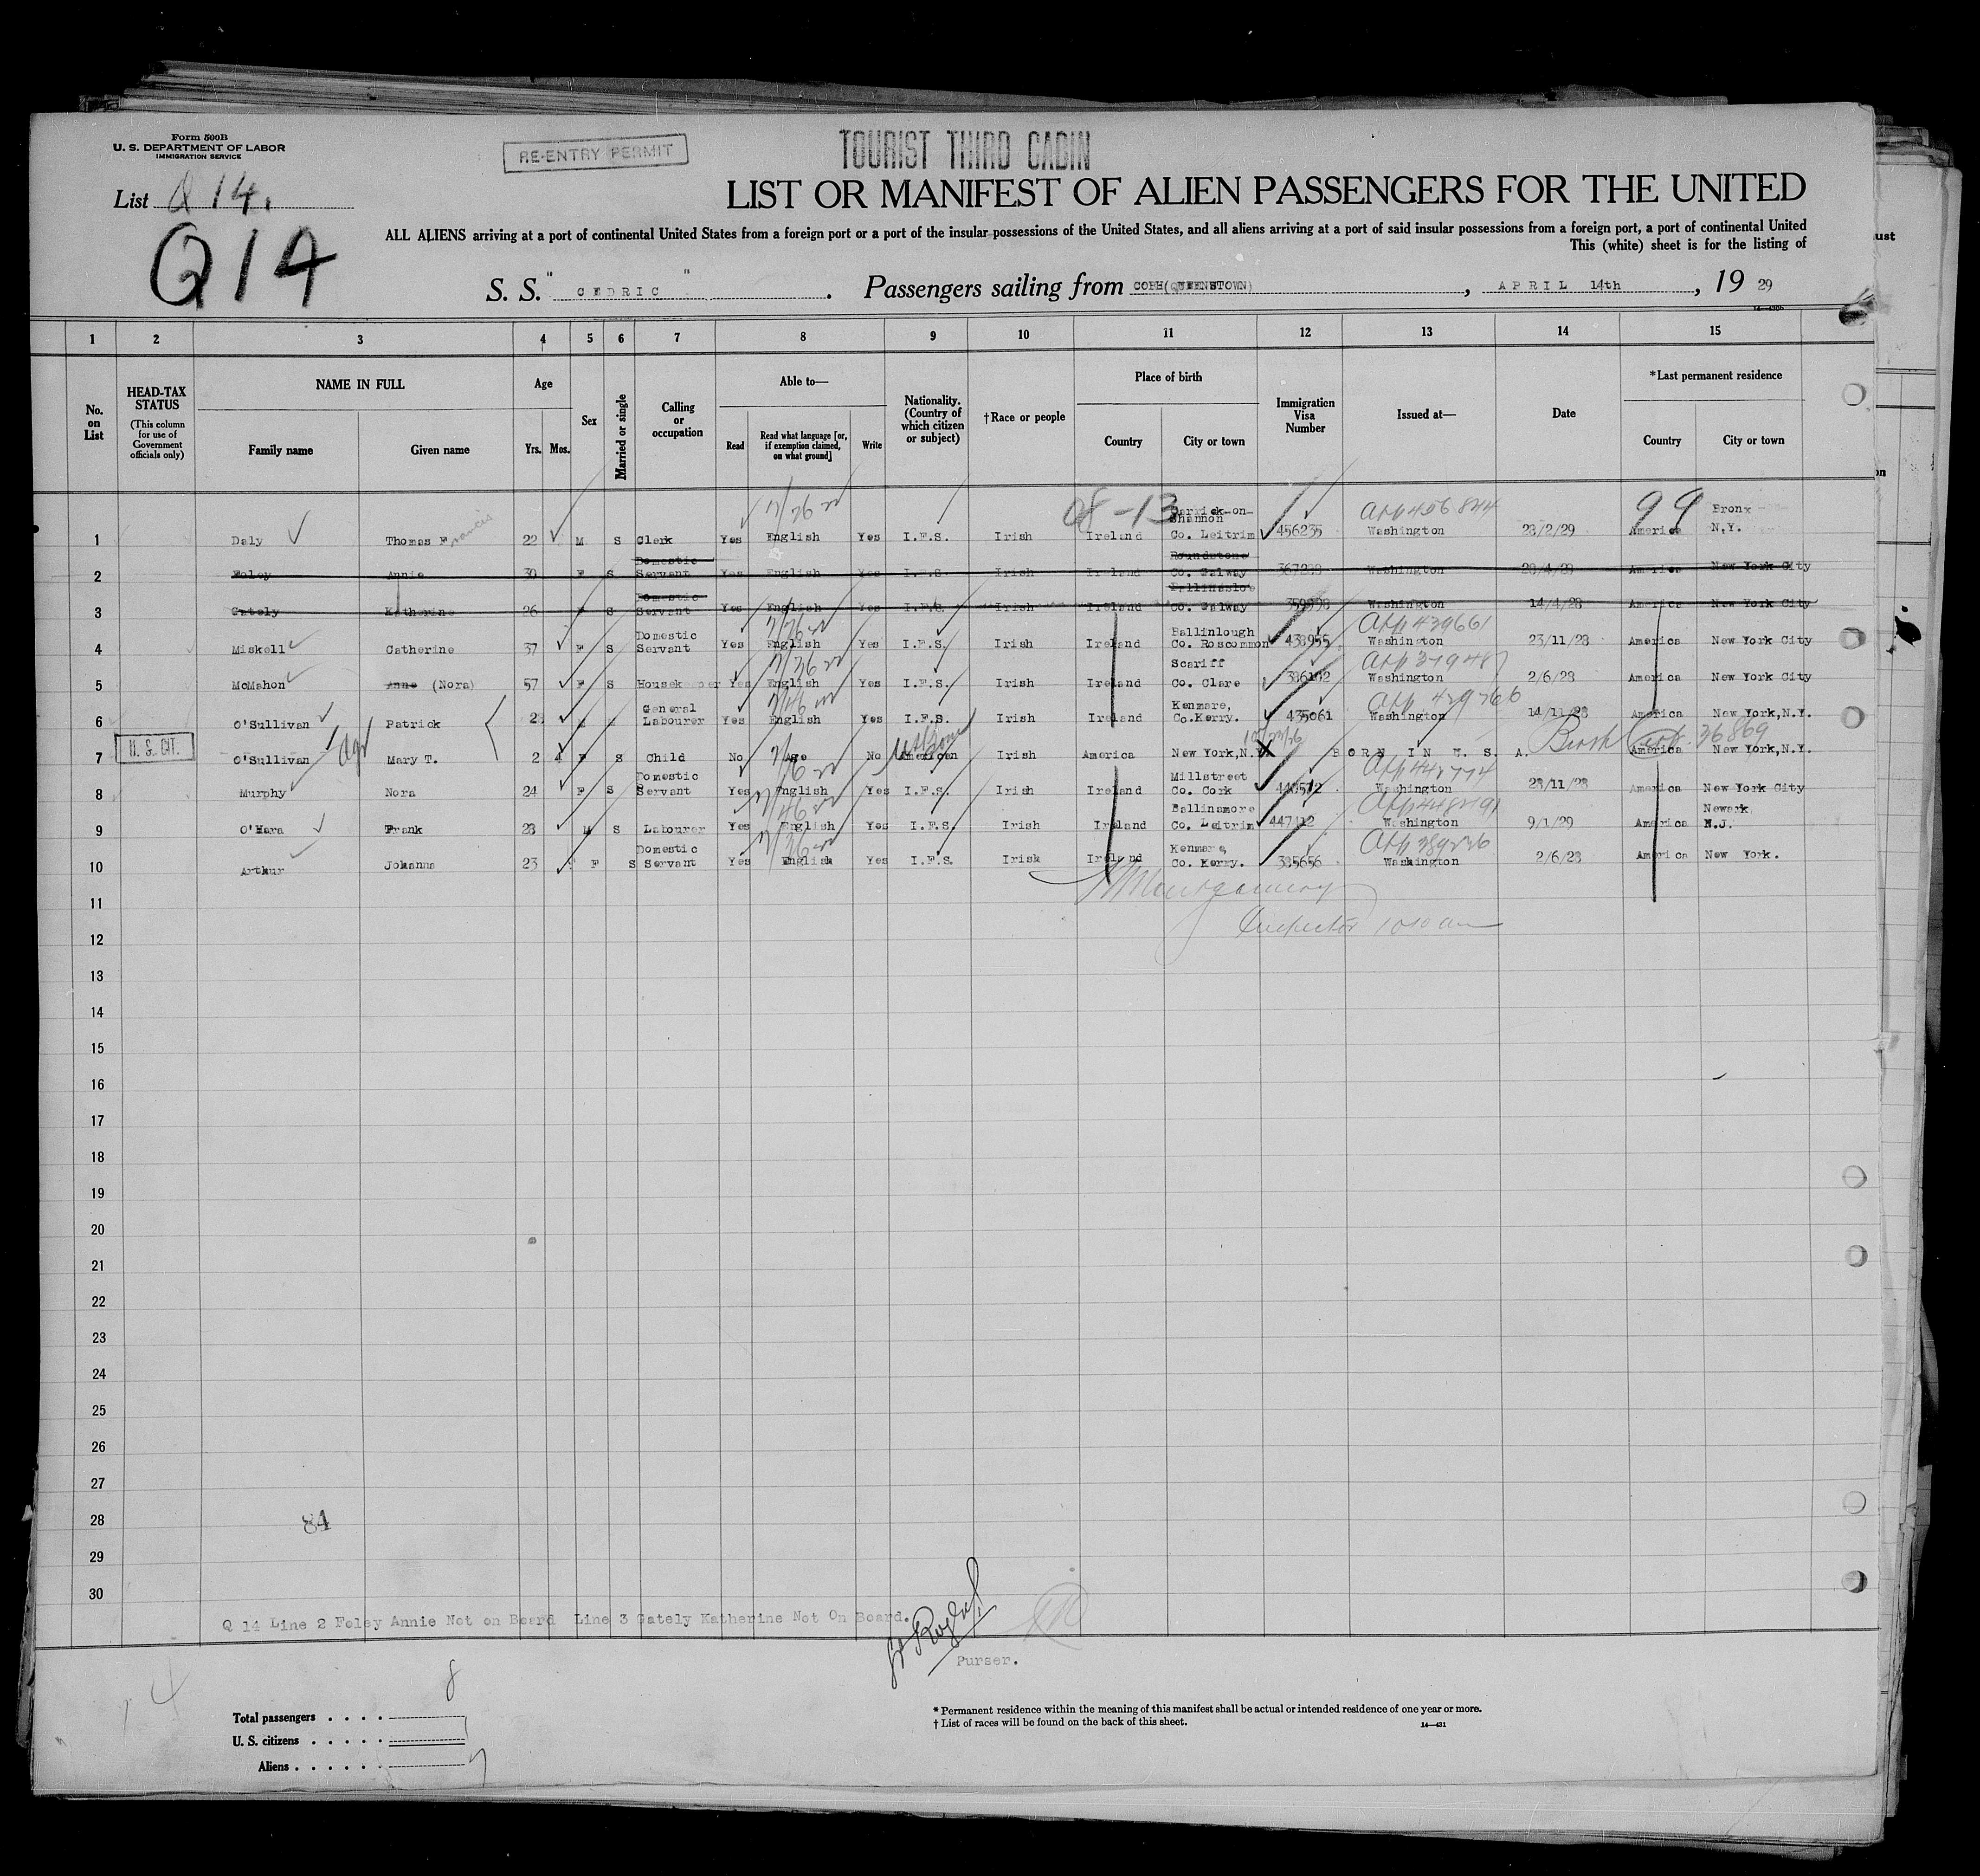 Form 500B
U. S. DEPARTMENT OF LABOR
IMMIGRATION SERVICE
RE-ENTRY PERMIT
TOURIST THIRD CABIN
List Q 14.
Q14
LIST OR MANIFEST OF ALIEN PASSENGERS FOR THE UNITED
ALL ALIENS arriving at a port of continental United States from a foreign port or a port of the insular possessions of the United States, and all aliens arriving at a port of said insular possessions from a foreign port, a port of continental United
This (white) sheet is for the listing of
S. S. " CEDRIC " . Passengers sailing from COBH(QUEENSTOWN) , APRIL 14th , 19 29
1 2 3 4 5 6 7 8 9 10 11 12 13 14 15
No. on List
HEAD-TAX STATUS (This column for use of Government officials only)
NAME IN FULL Family name Given name
Age Yrs. Mos.
Sex
Married or single
Calling or occupation
Able to— Read Read what language [or, if exemption claimed, on what ground] Write
Nationality. (Country of which citizen or subject)
†Race or people
Place of birth Country City or town
Immigration Visa Number
Issued at—
Date
*Last permanent residence Country City or town
08-13 99
1 Daly Thomas Francis 22 M S Clerk Yes English Yes I.F.S. Irish Ireland Carrick-on-Shannon Co. Leitrim 456235 Washington 28/2/29 America Bronx N.Y.
2 Foley Annie 30 F S Domestic Servant Yes English Yes I.F.S. Irish Ireland Roundstone Co. Galway Washington America New York City
3 Gately Katherine 26 F S Domestic Servant Yes English Yes I.F.S. Irish Ireland Co. Galway Washington 14/4/28 America New York City
4 Miskell Catherine 37 F S Domestic Servant Yes English Yes I.F.S. Irish Ireland Ballinlough Co. Roscommon 438955 App 439661 Washington 23/11/28 America New York City
5 McMahon Anne (Nora) 57 F S Housekeeper Yes English Yes I.F.S. Irish Ireland Scariff Co. Clare Washington 2/6/28 America New York City
6 O'Sullivan Patrick M General Labourer Yes English Yes I.F.S. Irish Ireland Kenmare, Co.Kerry. 435061 Washington 14/11/28 America New York,N.Y.
U. S. CIT.
7 O'Sullivan Mary T. 2 4 F S Child No Age No American Irish America New York,N.Y. BORN IN U. S. A. America New York,N.Y.
8 Murphy Nora 24 F S Domestic Servant Yes English Yes I.F.S. Irish Ireland Millstreet Co. Cork Washington 28/11/28 America New York City
9 O'Hara Frank 28 M S Labourer Yes English Yes I.F.S. Irish Ireland Ballinamore Co. Leitrim 447412 Washington 9/1/29 America Newark N.J.
10 Arthur Johanna 23 F S Domestic Servant Yes English Yes I.F.S. Irish Ireland Kenmare, Co. Kerry. 385656 Washington 2/6/28 America New York.
Montgomery
11
Inspector
12
13
14
15
16
17
18
19
20
21
22
23
24
25
26
27
28
84
29
30
Q 14 Line 2 Foley Annie Not on Board Line 3 Gately Katherine Not On Board.
Purser.
Total passengers . . . . 8
U. S. citizens . . . . . 1
Aliens . . . . . . 7
* Permanent residence within the meaning of this manifest shall be actual or intended residence of one year or more.
† List of races will be found on the back of this sheet.
14—431